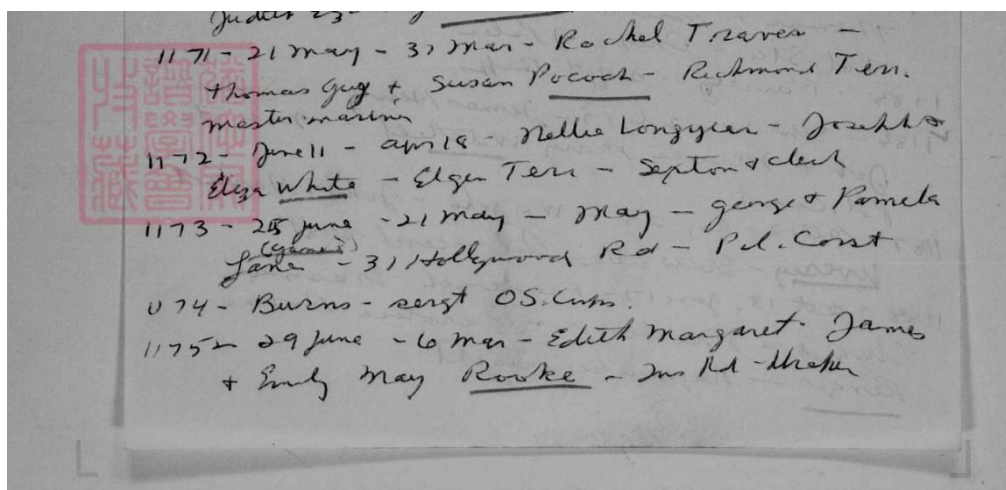 Judith
1171 - 21 May - 31 Mar - Rachel Travers -
Thomas Guy + Susan Pocock - Richmond Terr.
master mariner
1172 - June 11 - Apr 18 - Nellie Longyear - Joseph &
Eliza White - Elgin Terr - Sexton & clerk
1173 - 25 June - 21 May - May - George & Pamela
(James)
Lane - 31 Hollywood Rd - Pol. Const
1174 - Burns - sergt O.S. Corps
1175 - 29 June - 6 Mar - Edith Margaret - James
+ Emily May Rooke - Rd -